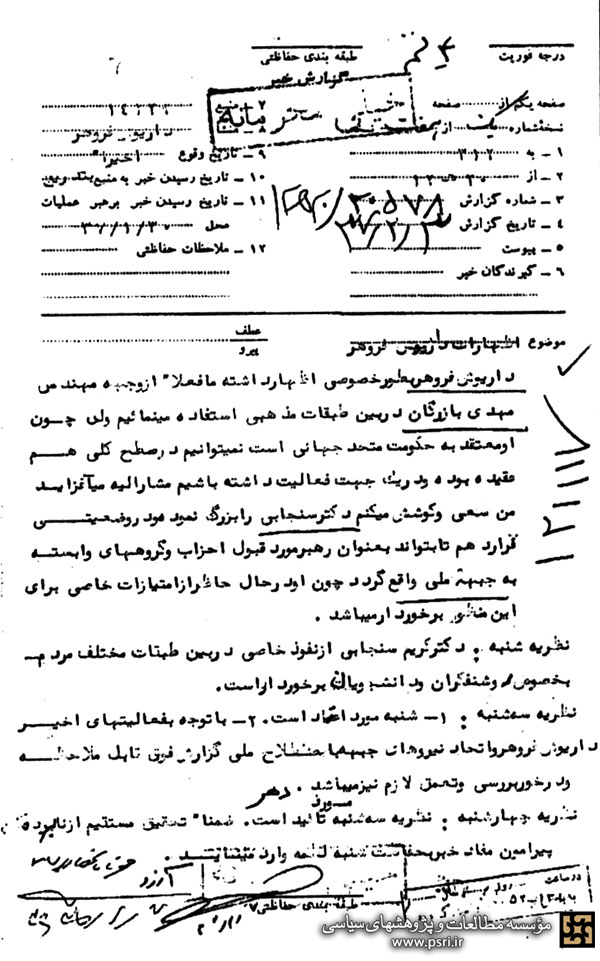 درجه فوریت
طبقه بندی حفاظتی
گزارش خبر
صفحه یکم از صفحه
نسخه شماره از
۱ – به ۳۱۲
۲ – از
۳ – شماره گزارش
۴ – تاریخ گزارش
۵ – پیوست
۶ – گیرندگان خبر
۷ – منبع
۸ – منشاء داریوش فروهر
۹ – تاریخ وقوع اخیرا"
۱۰ – تاریخ رسیدن خبر به منبع
۱۱ – تاریخ رسیدن خبر برهبر عملیات
محل
۱۲ – ملاحظات حفاظتی
موضوع اظهارات داریوش فروهر
عطف
پیرو
داریوش فروهر بطور خصوصی اظهار داشته ما فعلا" از وجهه مهندس
مهدی بازرگان در بین طبقات مذهبی استفاده مینمائیم ولی چون
او معتقد به حکومت متحد جهانی است نمیتوانیم در سطح کلی هم
عقیده بوده و در یک جبهت فعالیت داشته باشیم مشارالیه میافزاید
من سعی وکوشش میکنم دکتر سنجابی را بزرگ نموده و در وضعیتی
قرار دهم تا بتواند بعنوان رهبر مورد قبول احزاب وگروههای وابسته
به جبهه ملی واقع گردد چون او در حال حاضر از امتیازات خاصی برای
این منظور برخوردار میباشد .
نظریه شنبه : دکتر کریم سنجابی از نفوذ خاصی در بین طبقات مختلف مردم –
بخصوص روشنفکران و دانشجویان برخوردار است.
نظریه سه شنبه : ۱– شنبه مورد اعتماد است. ۲– با توجه بفعالیتهای اخیر
داریوش فروهر و اتحاد نیروهای جبهه باصطلاح ملی گزارش فوق قابل ملاحظه
و در خور بررسی وتعمق لازم نیز میباشد . دهر
نظریه چهارشنبه : نظریه سه شنبه مورد تائید است. ضمنا" تحقیق مستقیم از نامبرده
پیرامون مفاد خبر بحفاظت شنبه لطمه وارد مینماید .
آرزو
طبقه بندی حفاظتی
مؤسسه مطالعات و پژوهشهای سیاسی
www.psri.ir